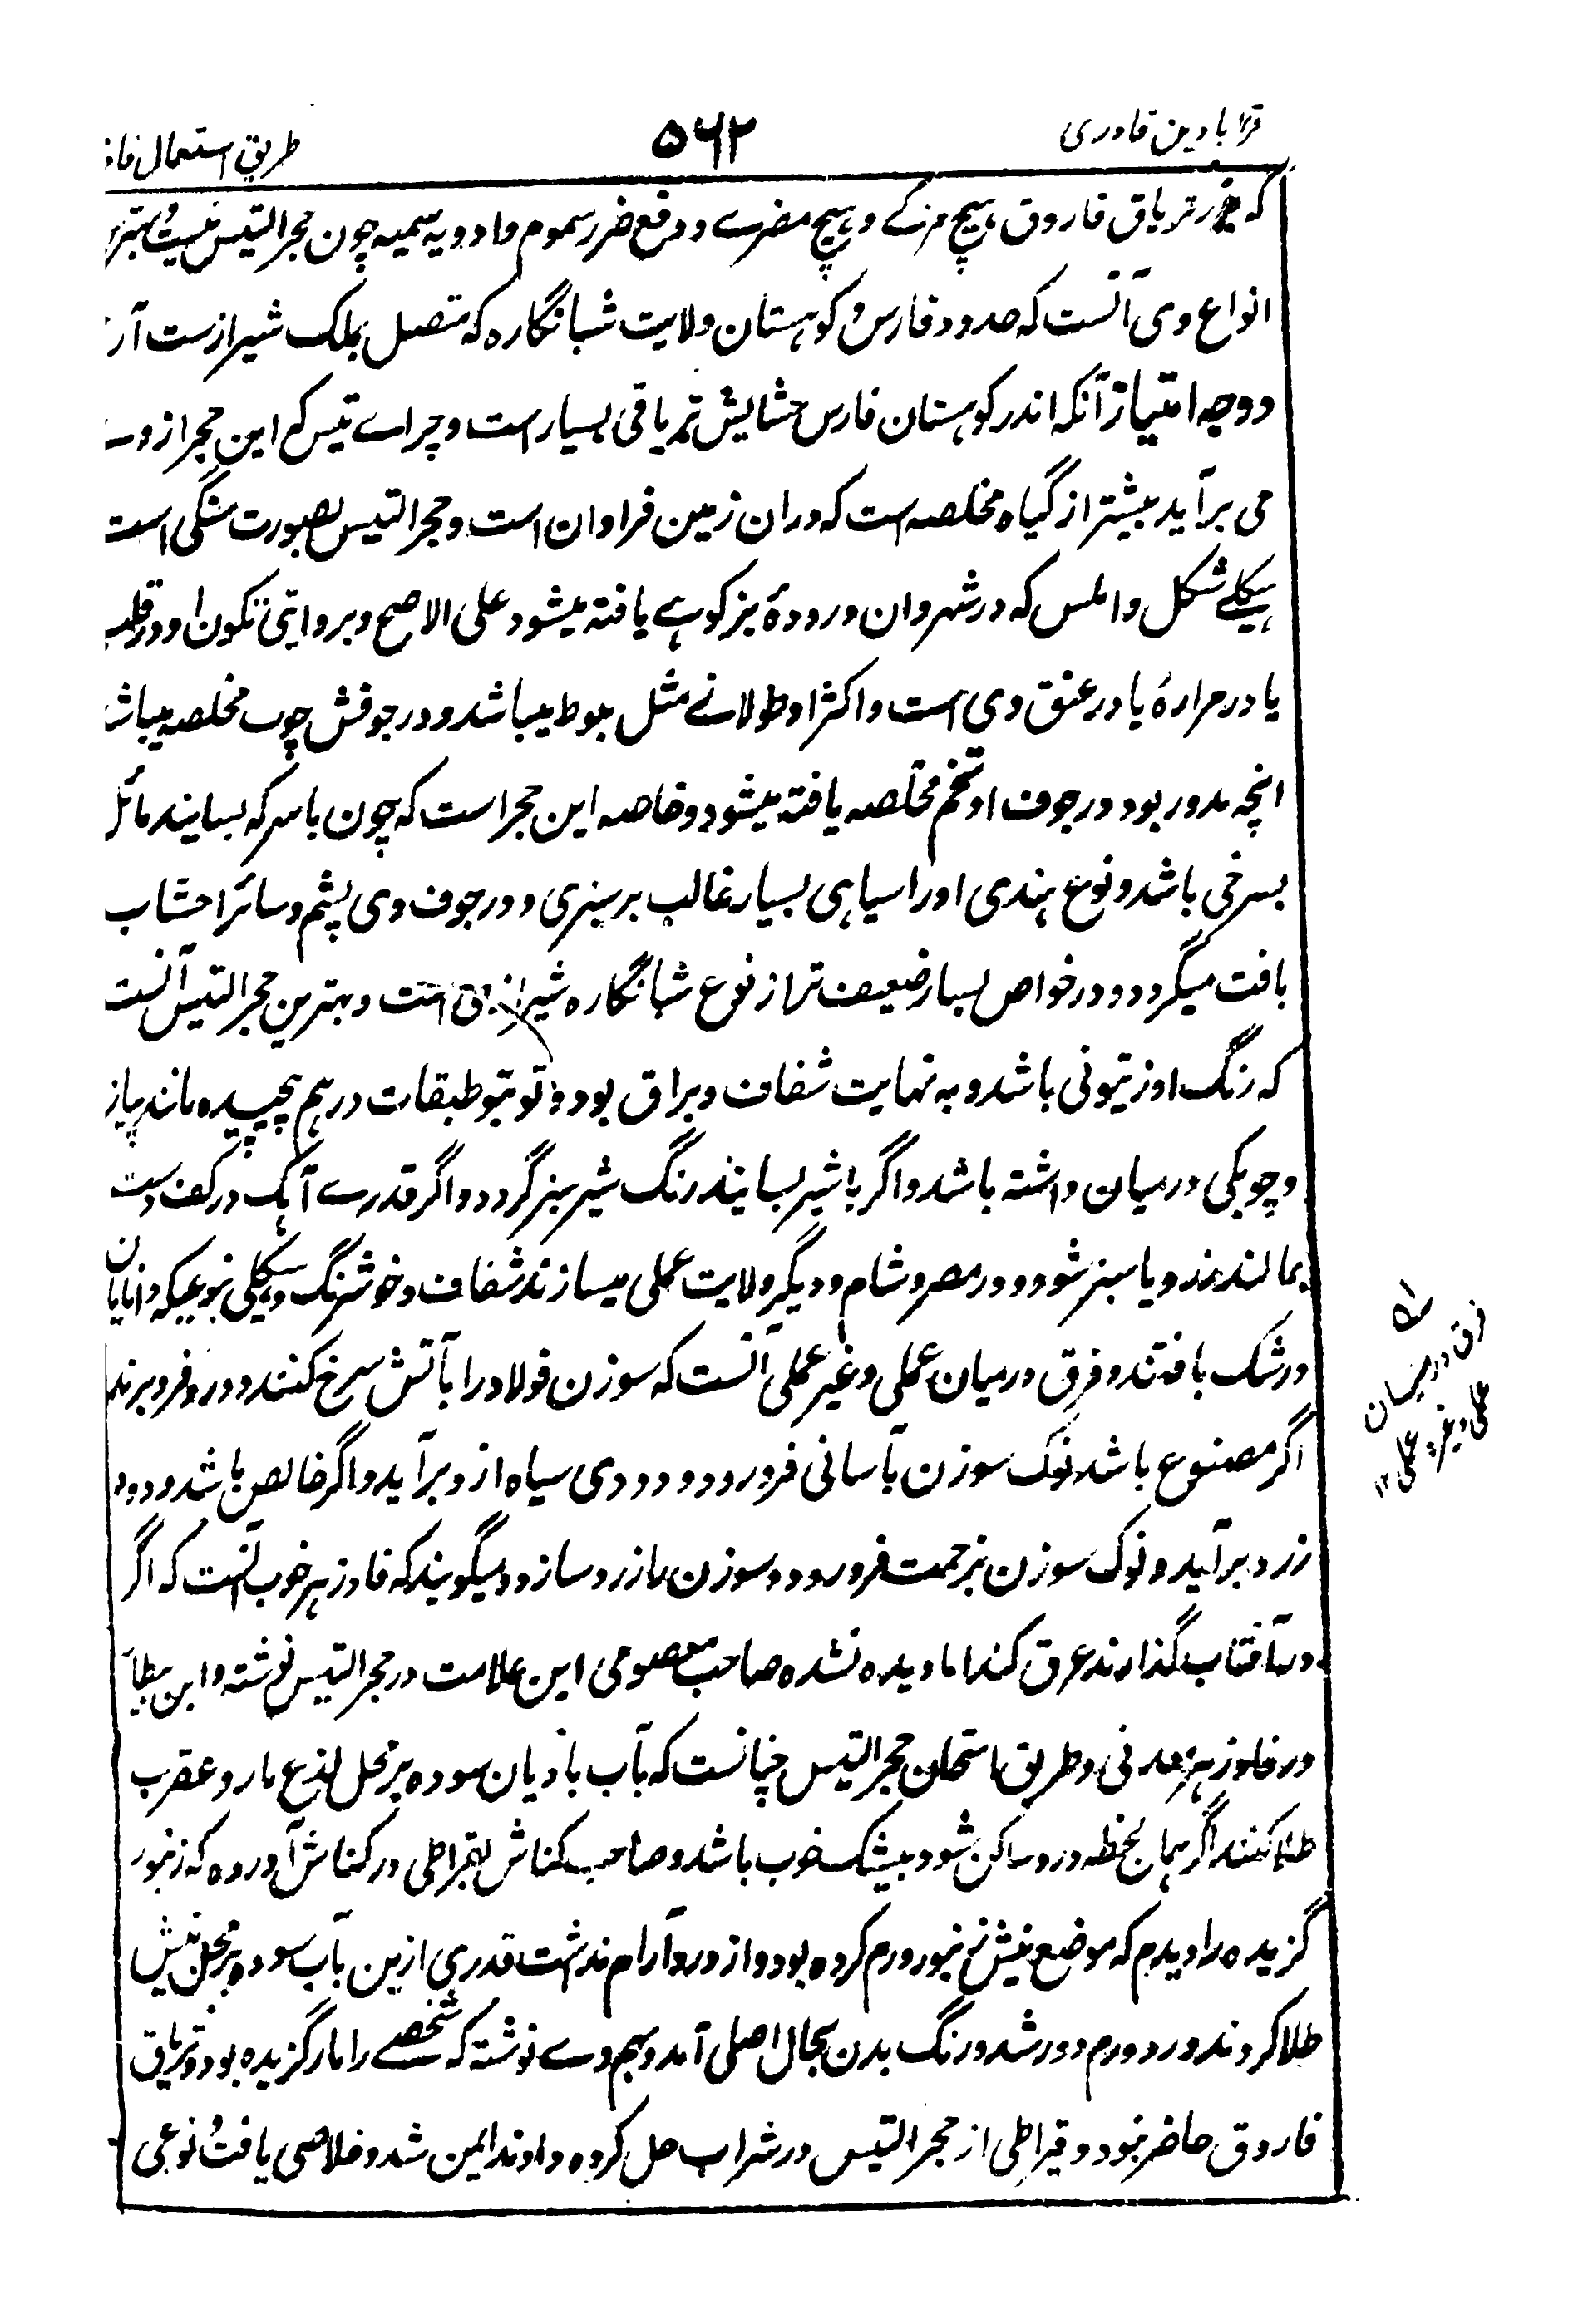 قرابادین قادری
۵۶۲
طریق استعمال فاد
که جز تریاق فاروق هیچ مرکبے و هیچ مفردے در دفع ضرر سموم و ادویه سمیه چون حجر التیس نیست و بهترین
انواع وی آنست که حدود فارس و کوهستان ولایت شبانکاره که متصل بملک شیراز ست آر
و وجه امتیاز آنکه اندر کوهستان فارس حشایش تریاقی بسیار است و چراے تیس که این حجر از وے
می برآید بیشتر از گیاه مخلصه است که دران زمین فراوان است و حجر التیس بصورت سنگی است
هیکلے شکل و املس که در شهر وان و رودۀ بز کوهے یافته میشود علی الاصح و بروایتی تکون او در قلب
یا در مرارۀ یا در عنق وی است و اکثر او طولانے مثل بلوط میباشد و در جوفش چوب مخلصه میباشد
انچه مدور بود در جوف او تخم مخلصه یافته میشود و خاصه این حجر است که چون با سرکه بسایند مائل
بسرخی باشد و نوع هندی او را سیاهی بسیار غالب بر سبزی و در جوف وی پشم و سائر احشاب
یافت میگردد و در خواص بسیار ضعیف تر از نوع شبانکاره شیرازی است و بهترین حجر التیس آنست
که رنگ او زیتونی باشد و به نهایت شفاف و براق بود و تو بتو طبقات در هم پیچیده مانند پیاز
و چوبکی درمیان داشته باشد و اگر با شیر بسایند رنگ شیر سبز گردد و اگر قدرے آهک در کف دست
بمالند زرد یا سبز شود و در مصر و شام و دیگر ولایت عملی میسازند شفاف و خوشرنگ و هیکلی بنوعیکه دانایان
در شک بافتند و فرق درمیان عملی و غیر عملی آنست که سوزن فولاد را بآتش سرخ کنند و درو فرو برند
اگر مصنوع باشد نوک سوزن بآسانی فرو رود و دودی سیاه ازو برآید و اگر خالص باشد دود
زرد برآید و نوک سوزن بزحمت فرو رود و سوزن را زرد سازد و میگویند که فادزهر خوب آنست که اگر
در آفتاب گذارند عرق کند اما دیده نشده صاحب معصومی این علامت در حجر التیس نوشته و ابن بیطار
در فادزهر معدنی و طریق امتحان حجر التیس چنانست که بآب بادیان سوده بر محل لذع مار و عقرب
طلا کنند اگر همان لحظه درد ساکن شود بیشک خوب باشد و صاحب کناش بقراطی در کناش آورده که زنبور
گزیده را دیدم که موضع نیش زنبور ورم کرده بود و از درد آرام نداشت قدری ازین بآب سوده بر محل نیش
طلا کردند و درد و ورم دور شد و رنگ بدن بحال اصلی آمد و هم وے نوشته که شخصے را مار گزیده بود و تریاق
فاروق حاضر نبود دو قیراطی از حجر التیس در شراب حل کرده دادند ایمن شد و خلاصی یافت و نوعی
فرق درمیان
عملی و غیر عملی ۱۲